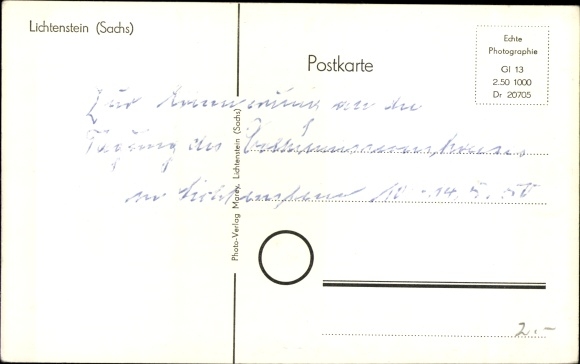 Lichtenstein (Sachs)
Postkarte
Echte
Photographie
Gl 13
2.50 1000
Dr 20705
Zur Erinnerung an die
Tagung des
in Lichtenstein 10.-14.5.50
Photo-Verlag Marex, Lichtenstein (Sachs)
2.-